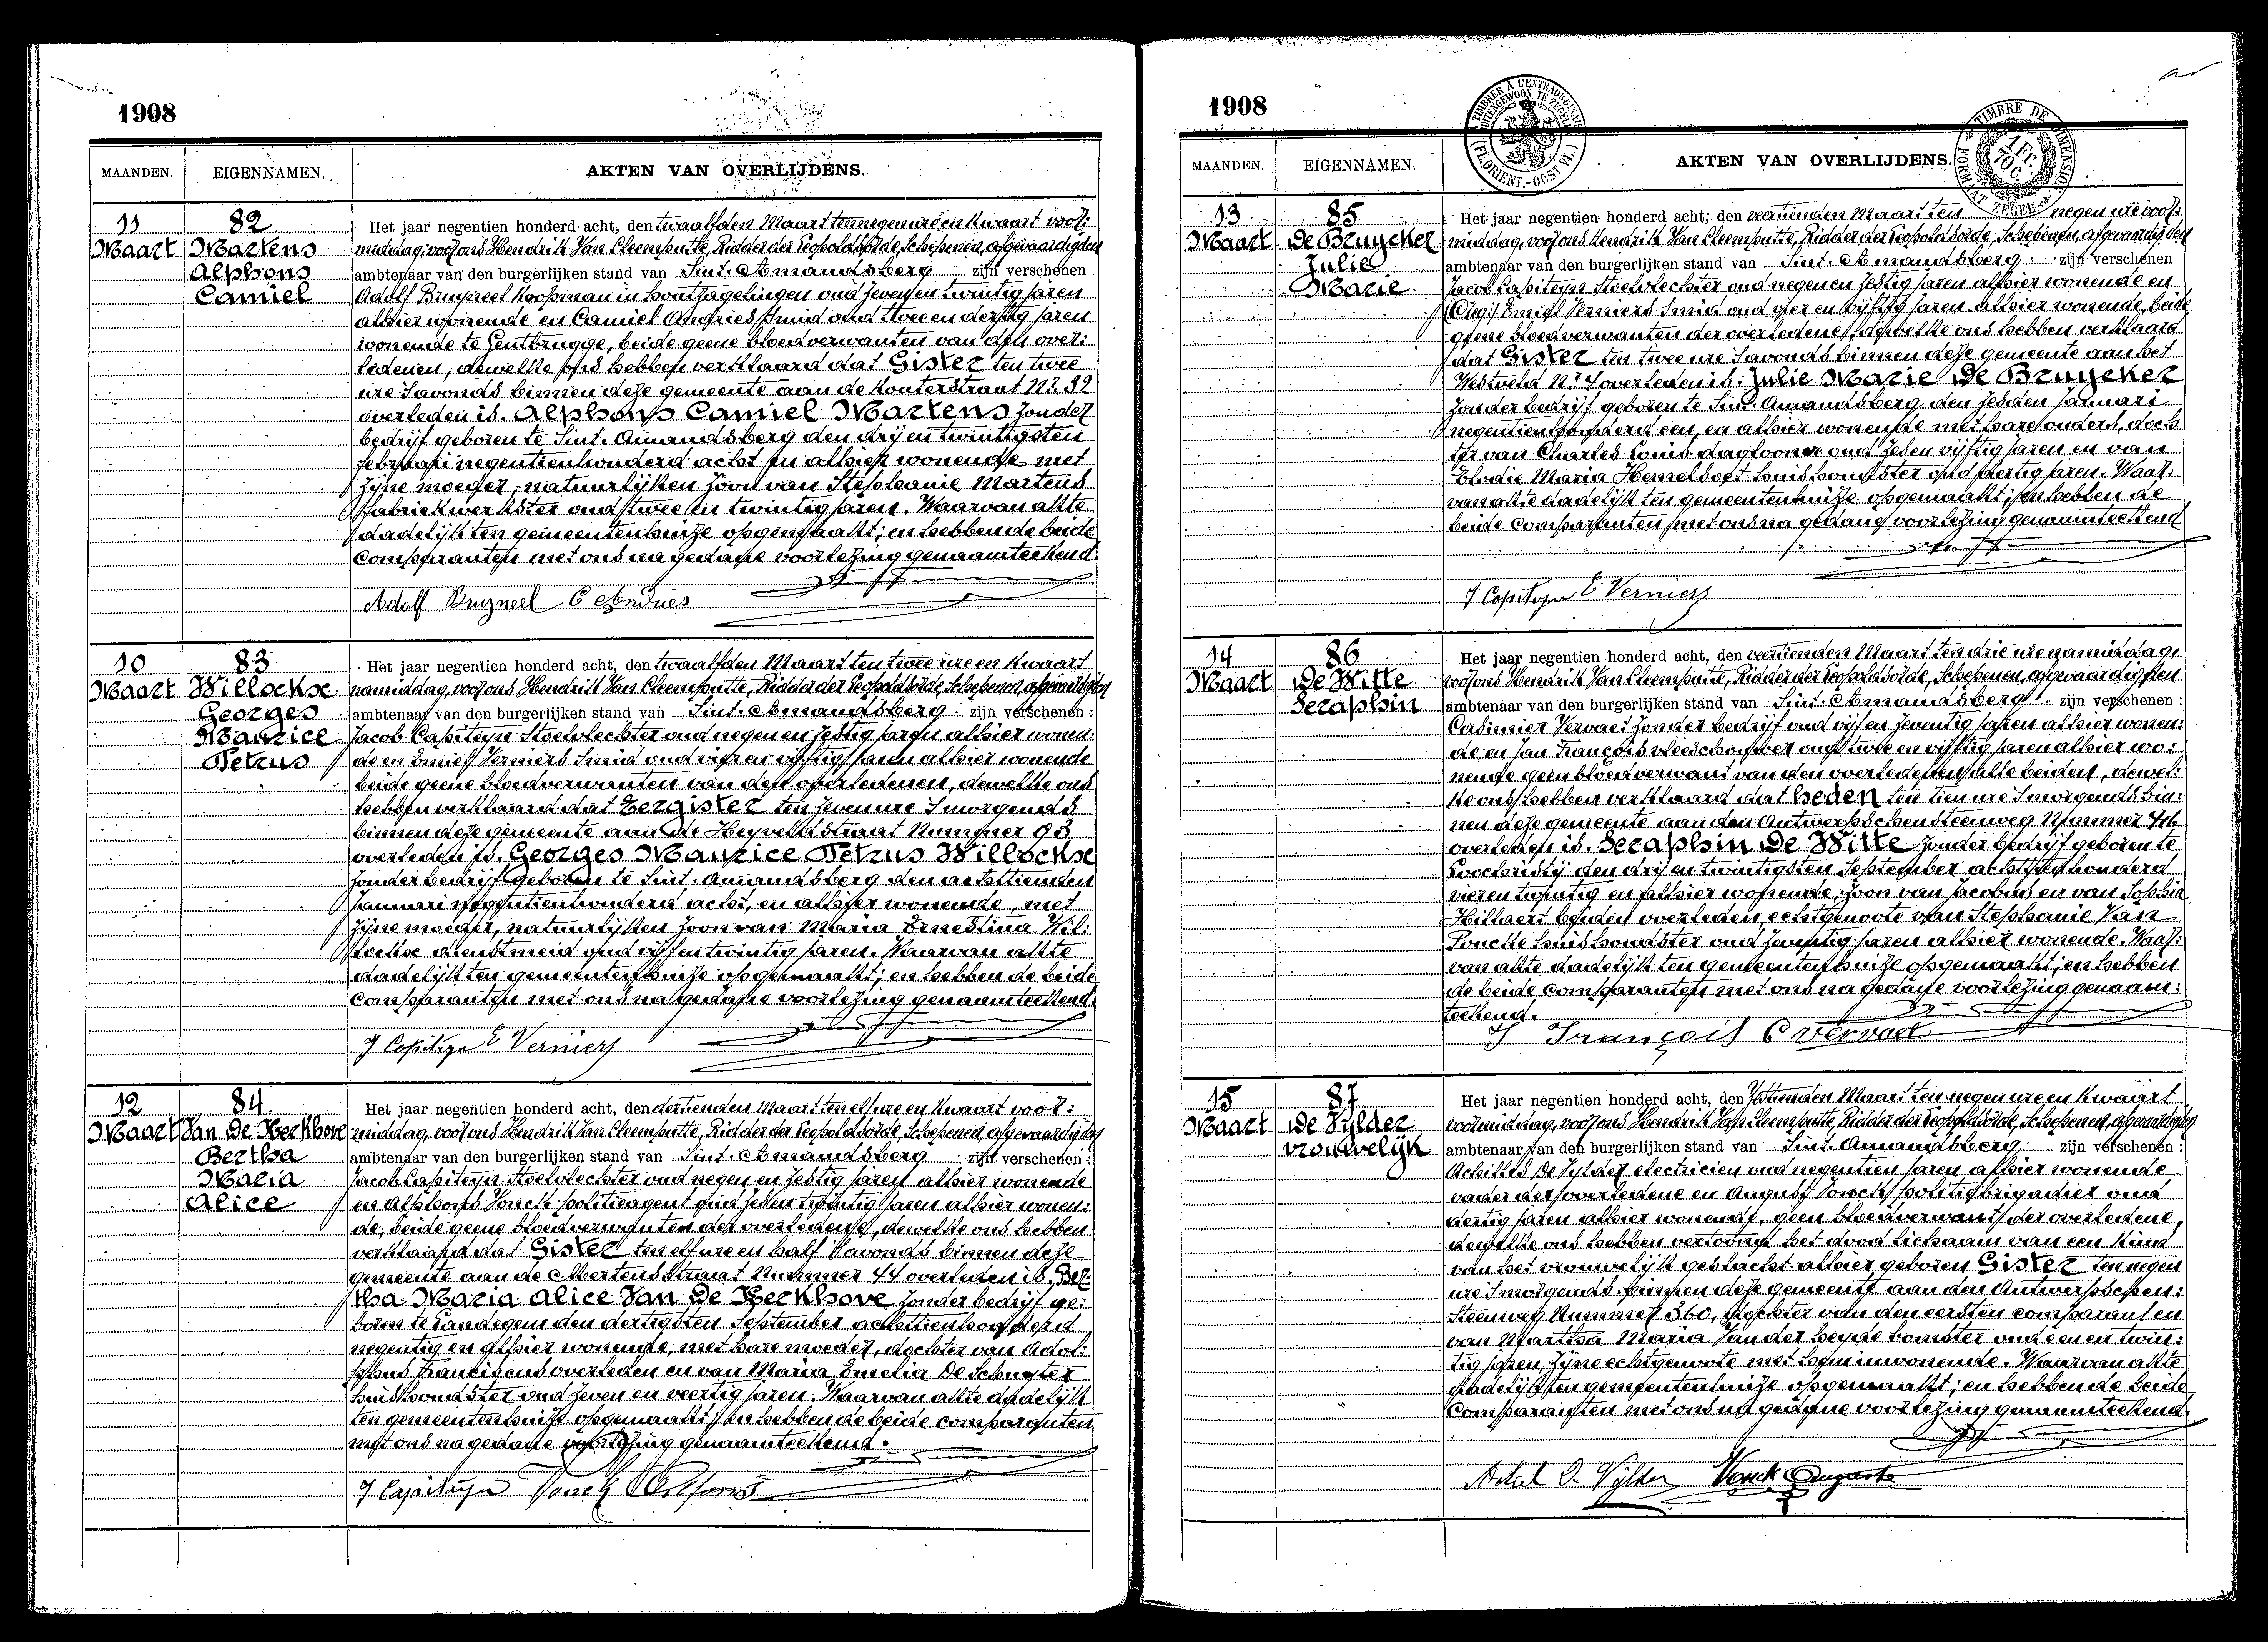 1908
MAANDEN. EIGENNAMEN. AKTEN VAN OVERLIJDENS.
11 Maart
82
Martens
Alphons
Camiel
Het jaar negentien honderd acht, den twaalfden Maart ten negen ure en kwaart voor:
middag, voor ons Hendrik Van Cleemputte, Ridder der Leopoldsorde, Schepenen, afgevaardigden
ambtenaar van den burgerlijken stand van Sint. Amandsberg zijn verschenen
Adolf Bruyneel koopman in houtzagelingen oud zeven en twintig jaren
alhier wonende en Camiel Andries smid oud twee en dertig jaren
wonende te Gentbrugge, beide geene bloedverwanten van den over:
ledenen, dewelke ons hebben verklaard dat Gister ten twee
ure s'avonds binnen deze gemeente aan de Kouterstraat Nr. 32
overleden is. Alphons Camiel Martens zonder
bedrijf geboren te Sint. Amandsberg den drij en twintigsten
februari negentienhonderd acht en alhier wonende met
zijne moeder, natuurlijken zoon van Stephanie Martens
fabriekwerkster oud twee en twintig jaren. Waarvan akte
dadelijk ten gemeentenhuize opgemaakt; en hebben de beide
comparanten met ons na gedane voorlezing genaamteekend
Adolf Bruyneel C Andries
10 Maart
83
Willockse
Georges
Maurice
Petrus
Het jaar negentien honderd acht, den twaalfden Maart ten twee ure en kwaart
namiddag, voor ons Hendrik Van Cleemputte, Ridder der Leopoldsorde, Schepenen, afgevaardigden
ambtenaar van den burgerlijken stand van Sint. Amandsberg zijn verschenen:
Jacob Capiteyn Stoelvlechter oud negen en zestig jaren alhier wonen:
de en Emiel Verniers Smid oud vier en vijftig jaren alhier wonende
beide geene bloedverwanten van den overledenen, dewelke ons
hebben verklaard dat Eergister ten zeven ure s'morgends
binnen deze gemeente aan de Heyveldstraat Nummer 93
overleden is. Georges Maurice Petrus Willockse
zonder bedrijf geboren te Sint. Amandsberg den achttienden
Januari negentienhonderd acht, en alhier wonende, met
zijne moeder, natuurlijken zoon van Maria Ernestina Wil:
lockse dienstmeid oud vijf en twintig jaren. Waarvan akte
dadelijk ten gemeentenhuize opgemaakt; en hebben de beide
comparanten met ons na gedane voorlezing genaamteekend.
J Capiteyn E Verniers
12 Maart
84
Van De Kerkhove
Bertha
Maria
Alice
Het jaar negentien honderd acht, den dertienden Maart ten elf ure en kwaart voor:
middag, voor ons Hendrik Van Cleemputte, Ridder der Leopoldsorde, Schepenen, afgevaardigden
ambtenaar van den burgerlijken stand van Sint. Amandsberg zijn verschenen:
Jacob Capiteyn Stoelvlechter oud negen en zestig jaren alhier wonende
en Alphons Vonck politieagent oud zes en twintig jaren alhier wonen:
de, beide geene bloedverwanten der overledene, dewelke ons hebben
verklaard dat Gister ten elf ure en half s'avonds binnen deze
gemeente aan de Mertensstraat Nummer 44 overleden is. Ber:
tha Maria Alice Van De Kerkhove zonder bedrijf ge:
boren te Landegem den dertigsten September achttienhonderd
negentig en alhier wonende, met hare moeder, dochter van Adol:
phus Franciscus overleden en van Maria Emelia De Schuyter
huishoudster oud zeven en veertig jaren. Waarvan akte dadelijk
ten gemeentenhuize opgemaakt; en hebben de beide comparanten
met ons na gedane voorlezing genaamteekend.
J Capiteyn Vonck Alfons
1908
TIMBRER À L'EXTRAORDINAIRE
BUITENGEWOON TE ZEGELEN
(FL. ORIENT. - OOST VL.)
TIMBRE DE DIMENSION
FORMAAT ZEGEL
1 Fr. 10 C.
MAANDEN. EIGENNAMEN. AKTEN VAN OVERLIJDENS.
13 Maart
85
De Bruycker
Julie
Marie
Het jaar negentien honderd acht, den veertienden Maart ten negen ure voor:
middag, voor ons Hendrik Van Cleemputte, Ridder der Leopoldsorde, Schepenen, afgevaardigden
ambtenaar van den burgerlijken stand van Sint. Amandsberg zijn verschenen
Jacob Capiteyn Stoelvlechter oud negen en zestig jaren alhier wonende en
Emiel Verniers Smid oud vier en vijftig jaren alhier wonende, beide
geene bloedverwanten der overledene, dewelke ons hebben verklaard
dat Gister ten twee ure s'avonds binnen deze gemeente aan het
Westveld Nr. 4 overleden is. Julie Marie De Bruycker
zonder bedrijf geboren te Sint. Amandsberg den zesden Januari
negentienhonderd een, en alhier wonende met hare ouders, doch:
ter van Charles Louis daglooner oud zes en vijftig jaren en van
Elodie Maria Hemelsoet huishoudster oud dertig jaren. Waar:
van akte dadelijk ten gemeentenhuize opgemaakt; en hebben de
beide comparanten met ons na gedane voorlezing genaamteekend
J Capiteyn E Verniers
14 Maart
86
De Witte
Seraphin
Het jaar negentien honderd acht, den veertienden Maart ten drie ure namiddag,
voor ons Hendrik Van Cleemputte, Ridder der Leopoldsorde, Schepenen, afgevaardigden
ambtenaar van den burgerlijken stand van Sint. Amandsberg zijn verschenen:
Casimier Vervaet zonder bedrijf oud vijf en zeventig jaren alhier wonen:
de en Jan François vleeschhouwer oud twee en vijftig jaren alhier wo:
nende geen bloedverwant van den overledenen alle beiden, dewel:
ke ons hebben verklaard dat heden ten tien ure s'morgends bin:
nen deze gemeente aan den Antwerpschensteenweg Nummer 416
overleden is. Seraphin De Witte zonder bedrijf geboren te
Loochristij den drij en twintigsten September achttienhonderd
vier en twintig en alhier wonende, zoon van Jacobus en van Sophia
Hillaert beiden overleden, echtgenoote van Stephanie Van
Poucke huishoudster oud zeventig jaren alhier wonende. Waar:
van akte dadelijk ten gemeentenhuize opgemaakt; en hebben
de beide comparanten met ons na gedane voorlezing genaam:
teekend.
J François C Vervaet
15 Maart
87
De Vylder
vrouwelijk
Het jaar negentien honderd acht, den zestienden Maart ten negen ure en kwaart
voormiddag, voor ons Hendrik Van Cleemputte, Ridder der Leopoldsorde, Schepenen, afgevaardigden
ambtenaar van den burgerlijken stand van Sint. Amandsberg zijn verschenen:
Achilles De Vylder electricien oud negentien jaren alhier wonende
vader der overledene en August Vonck politiebrigadier oud
dertig jaren alhier wonende, geen bloedverwant der overledene,
dewelke ons hebben vertoond het dood lichaam van een kind
van het vrouwelijk geslacht alhier geboren Gister ten negen
ure s'morgends binnen deze gemeente aan den Antwerpschen:
steenweg Nummer 360, dochter van den eersten comparant en
van Martha Maria Van der heyde bomster oud een en twin:
tig jaren, zijne echtgenoote met hem inwonende. Waarvan akte
dadelijk ten gemeentenhuize opgemaakt; en hebben de beide
comparanten met ons na gedane voorlezing genaamteekend.
Achiel De Vylder Vonck Auguste